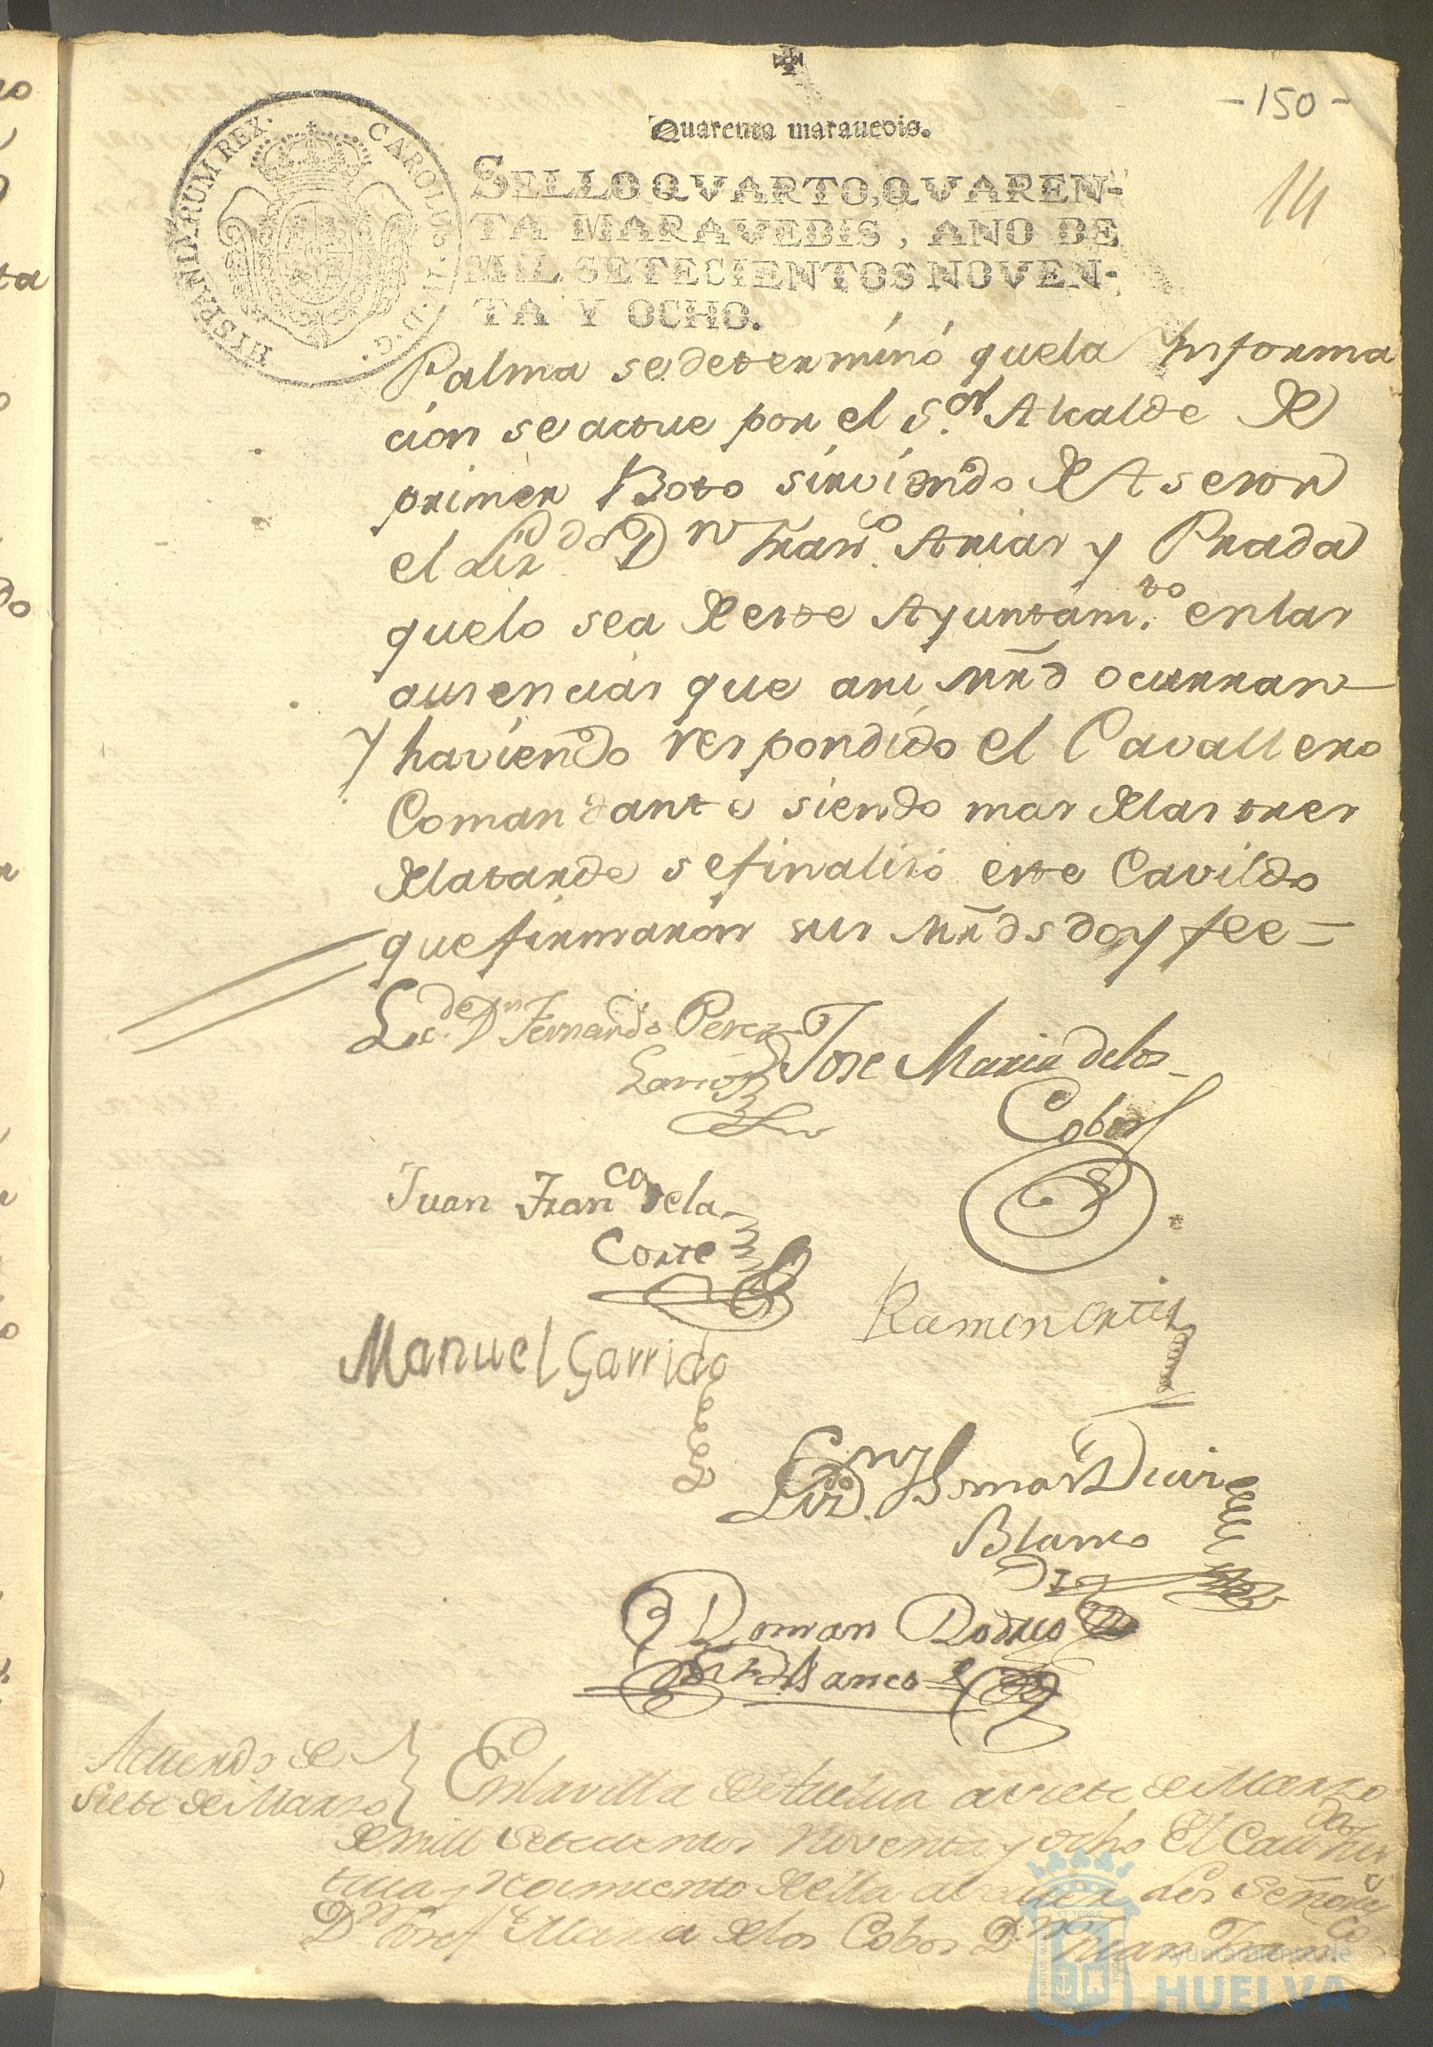 - 150 -
14
Quarenta maravedis.
HISPANIARUM REX. CAROLUS IV. D. G.
SELLO QVARTO, QVAREN-
TA MARAVEDIS, AÑO DE
MIL SETECIENTOS NOVEN-
TA Y OCHO.
Palma se determinó quela Informa
cion se actue por el S.or Alcalde de
primer Boto sirviendo de Asesor
el Liz.do Dn Fran.co Arias y Prada
quelo sea de este Ayuntam.to enlas
ausencias que asi Mrd ocurran
y haviendo respondido el Cavallero
Comandante siendo mas delas tres
delatarde se finalizó este Cavildo
que firmaron sus Mrds doy fee =
Licde. Dn Fernando Perez
Jose Maria delos
Cobos
Juan Franco dela
Corte
Ramon Ortiz
Manuel Garrido
Lizdo. Dn Thomas Diaz
Blanco
Roman Rodrig
Blanco
Acuerdo de
Siete de Marzo
Enlavilla de Huelva a siete de Marzo
de mill setecientos noventa y ocho El Cav.do Jus
ticia y Rexímiento de ella a los Señores
Dn Josef Maria delos Cobos Dn Juan Franco
Ayuntamiento de
HUELVA